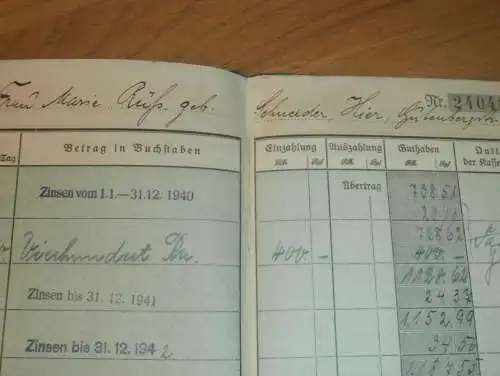 Frau Marie Rüß, geb. Schneider, Hier, Gutenbergstr.
Nr. 2404
Tag Betrag in Buchstaben Einzahlung Auszahlung Guthaben
RM. Rpf RM. Rpf RM. Rpf der Kasse
Zinsen vom 1.1.—31.12. 1940 Übertrag 708.51
20 11
728 62
Vierhundert RM. 400 – 400 –
1128.62
Zinsen bis 31. 12. 1941 24 37
1152 99
Zinsen bis 31. 12. 194 2 34 56
1187 55